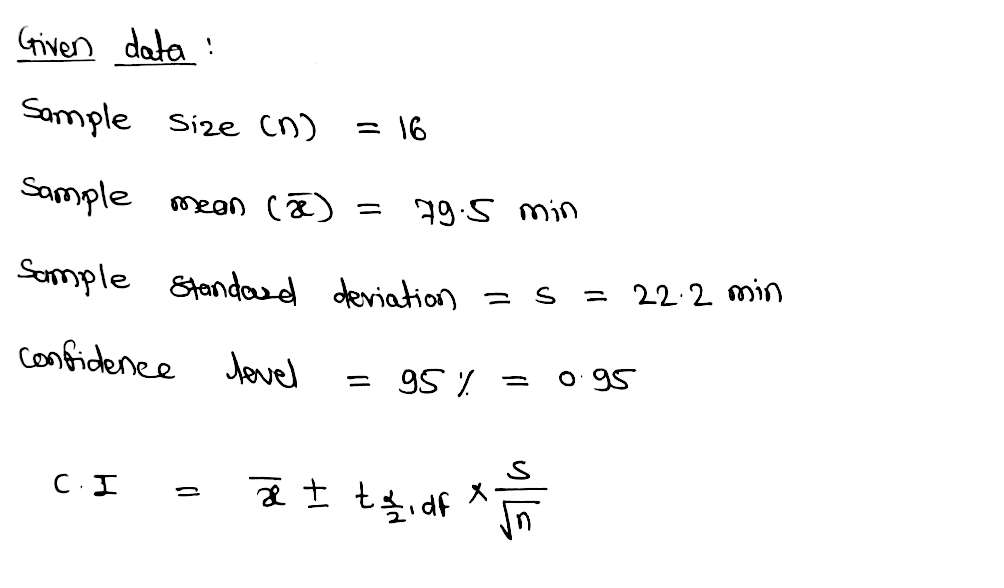 Given data :
Sample size (n) = 16
Sample mean (x̅) = 79.5 min
Sample standard deviation = s = 22.2 min
Confidence level = 95 % = 0.95
C.I = x̅ ± t α/2, df × s/√n